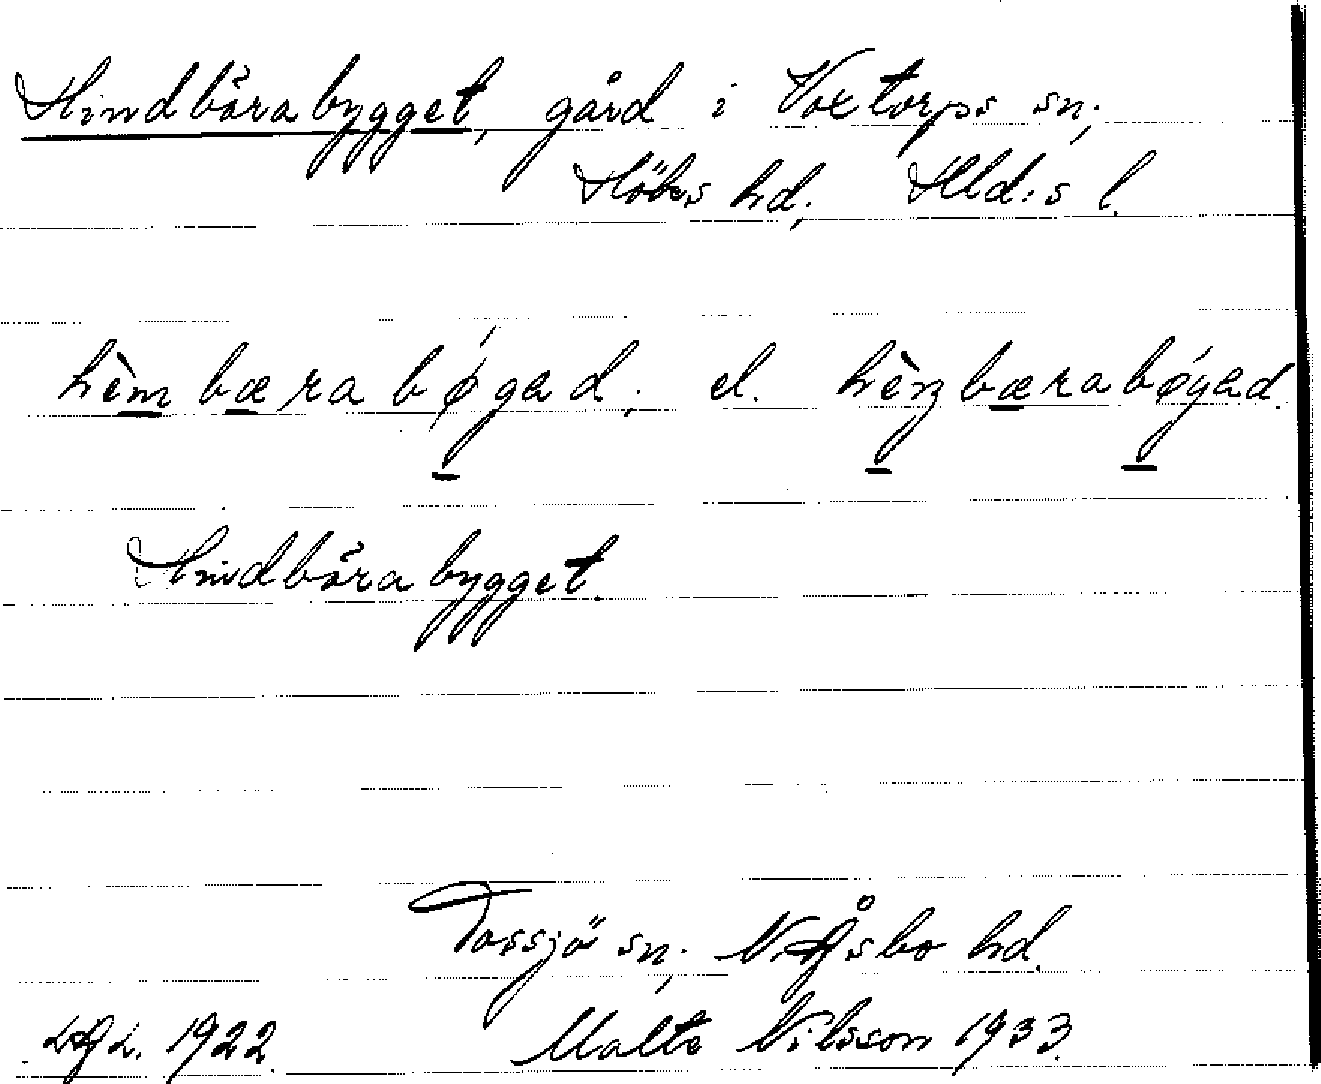 Hindbärabygget, gård i Voxtorps sn;
Höks hd, Hld:s l.
hèmbærabǿgad; el. hènbærabǿgad.
Hindbärabygget.
Tossjö sn; N. Åsbo hd.
1922. Malte Nilsson 1933.